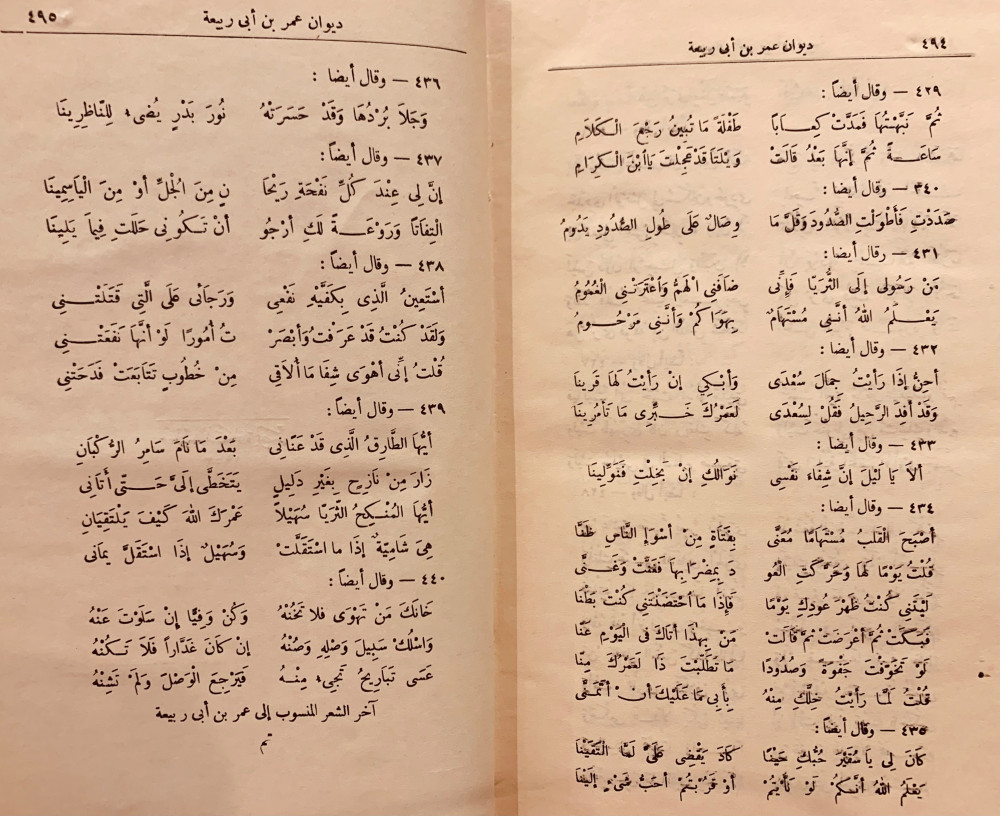 ٤٩٤ ديوان عمر بن أبى ربيعة
٤٢٩ — وقال أيضاً :
ثُمَّ نَبَّهْتُهَا فَمَدَّتْ كِعَابًا طَفْلَةً مَا تُبِينُ رَجْعَ الْكَلَامِ
سَاعَةً ثُمَّ إِنَّهَا بَعْدُ قَالَتْ وَيْلَتَا قَدْ عَجِلْتَ يَا ابْنَ الْكِرَامِ
٣٤٠ — وقال أيضا :
صَدَدْتِ فَأَطْوَلْتِ الصُّدُودَ وَقَلَّ مَا وِصَالٌ عَلَى طُولِ الصُّدُودِ يَدُومُ
٤٣١ — وقال أيضاً :
مَنْ رَسُولِى إِلَى الثُّرَيَّا فَإِنِّى ضَافَنِي الْهَمُّ وَاعْتَرَتْنِي الْغُمُومُ
يَعْلَمُ اللهُ أَنَّنِي مُسْتَهَامٌ بِهَوَاكُمْ وَأَنَّنِي مَرْحُومُ
٤٣٢ — وقال أيضا :
أَحِنُّ إِذَا رَأَيْتُ جِمَالَ سُعْدَى وَأَبْكِي إِنْ رَأَيْتُ لَهَا قَرِينَا
وَقَدْ أَفِدَ الرَّحِيلُ فَقُلْ لِسُعْدَى لَعَمْرُكَ خَبِّرِى مَا تَأْمُرِينَا
٤٣٣ — وقال أيضا :
أَلَا يَا لَيْلَ إِنَّ شِفَاءَ نَفْسِى نَوَالُكِ إِنْ بَخِلْتِ فَنَوِّلِينَا
٤٣٤ — وقال أيضاً :
أَصْبَحَ الْقَلْبُ مُسْتَهَامًا مُعَنَّى بِفَتَاةٍ مِنْ أَسْوَإِ النَّاسِ ظَنَّا
قُلْتُ يَوْمًا لَهَا وَحَرَّكَتِ الْعُو دَ بِمِضْرَابِهَا فَغَنَّتْ وَغَنَّى
لَيْتَنِي كُنْتُ ظَهْرَ عُودِكِ يَوْمًا فَإِذَا مَا احْتَضَنْتِنِي كُنْتُ بَطْنَا
فَبَكَتْ ثُمَّ أَعْرَضَتْ ثُمَّ قَالَتْ مَنْ بِهَذَا أَتَاكَ فى الْيَوْمِ عَنَّا
لَوْ تَخَوَّفْتَ جَفْوَةً وَصُدُودًا مَا تَطَلَّبْتَ ذَا لَعَمْرُكَ مِنَّا
قُلْتُ لَمَّا رَأَيْتُ خِلَّكِ مِنْهُ بِأَبِى مَا عَلَيْكَ أَنْ أَتَمَنَّى
٤٣٥ — وقال أيضاً :
كَانَ لِى يَا سُقَيْرُ حُبُّكِ حَيْنَا كَادَ يَقْضِى عَلَىَّ لَمَّا الْتَقَيْنَا
يَعْلَمُ اللهُ أَنَّكُمْ لَوْ نَأَيْتُمْ أَوْ قَرُبْتُمْ أَحَبُّ شَىْءٍ إِلَيْنَا
ديوان عمر بن أبى ربيعة ٤٩٥
٤٣٦ — وقال أيضا :
وَجَلَا بُرْدُهَا وَقَدْ حَسَرَتْهُ نُورَ بَدْرٍ يُضِىء لِلنَّاظِرِينَا
٤٣٧ — وقال أيضاً :
إِنَّ لِى عِنْدَ كُلِّ نَفْحَةِ رَيْحَا نٍ مِنَ الْجُلِّ أَوْ مِنَ الْيَاسَمِينَا
الْتِفَاتًا وَرَوْعَةً لَكِ أَرْجُو أَنْ تَكُونِى حَلَلْتِ فِيمَا يَلِينَا
٤٣٨ — وقال أيضاً :
أَسْتَعِينُ الَّذِى بِكَفَّيْهِ نَفْعِى وَرَجَائِى عَلَى الَّتِى قَتَلَتْنِى
وَلَقَدْ كُنْتُ قَدْ عَرَفْتُ وَأَبْصَرْ تُ أُمُورًا لَوْ أَنَّهَا نَفَعَتْنِى
قُلْتُ إِنِّى أَهْوَى شِفَا مَا أُلَاقِى مِنْ خُطُوبٍ تَتَابَعَتْ فَدَحَتْنِى
٤٣٩ — وقال أيضاً :
أَيُّهَا الطَّارِقُ الَّذِى قَدْ عَنَانِى بَعْدَ مَا نَامَ سَامِرُ الرُّكْبَانِ
زَارَ مِنْ نَازِحٍ بِغَيْرِ دَلِيلٍ يَتَخَطَّى إِلَىَّ حَتَّى أَتَانِى
أَيُّهَا الْمُنْكِحُ الثُّرَيَّا سُهَيْلًا عَمْرَكَ اللهَ كَيْفَ يَلْتَقِيَانِ
هِىَ شَامِيَّةٌ إِذَا ما اسْتَقَلَّتْ وَسُهَيْلٌ إِذَا اسْتَقَلَّ يمانى
٤٤٠ — وقال أيضاً :
خَانَكَ مَنْ تَهْوَى فلا تَخُنْهُ وَكُنْ وَفِيًّا إِنْ سَلَوْتَ عَنْهُ
وَاسْلُكْ سَبِيلَ وَصْلِهِ وَصُنْهُ إِنْ كَانَ غَدَّاراً فَلَا تَكُنْهُ
عَسَى تَبَارِيحُ تَجِىء مِنْهُ فَيَرْجِعَ الْوَصْلَ وَلَمْ تَشِنْهُ
آخر الشعر المنسوب إلى عمر بن أبى ربيعة
تم